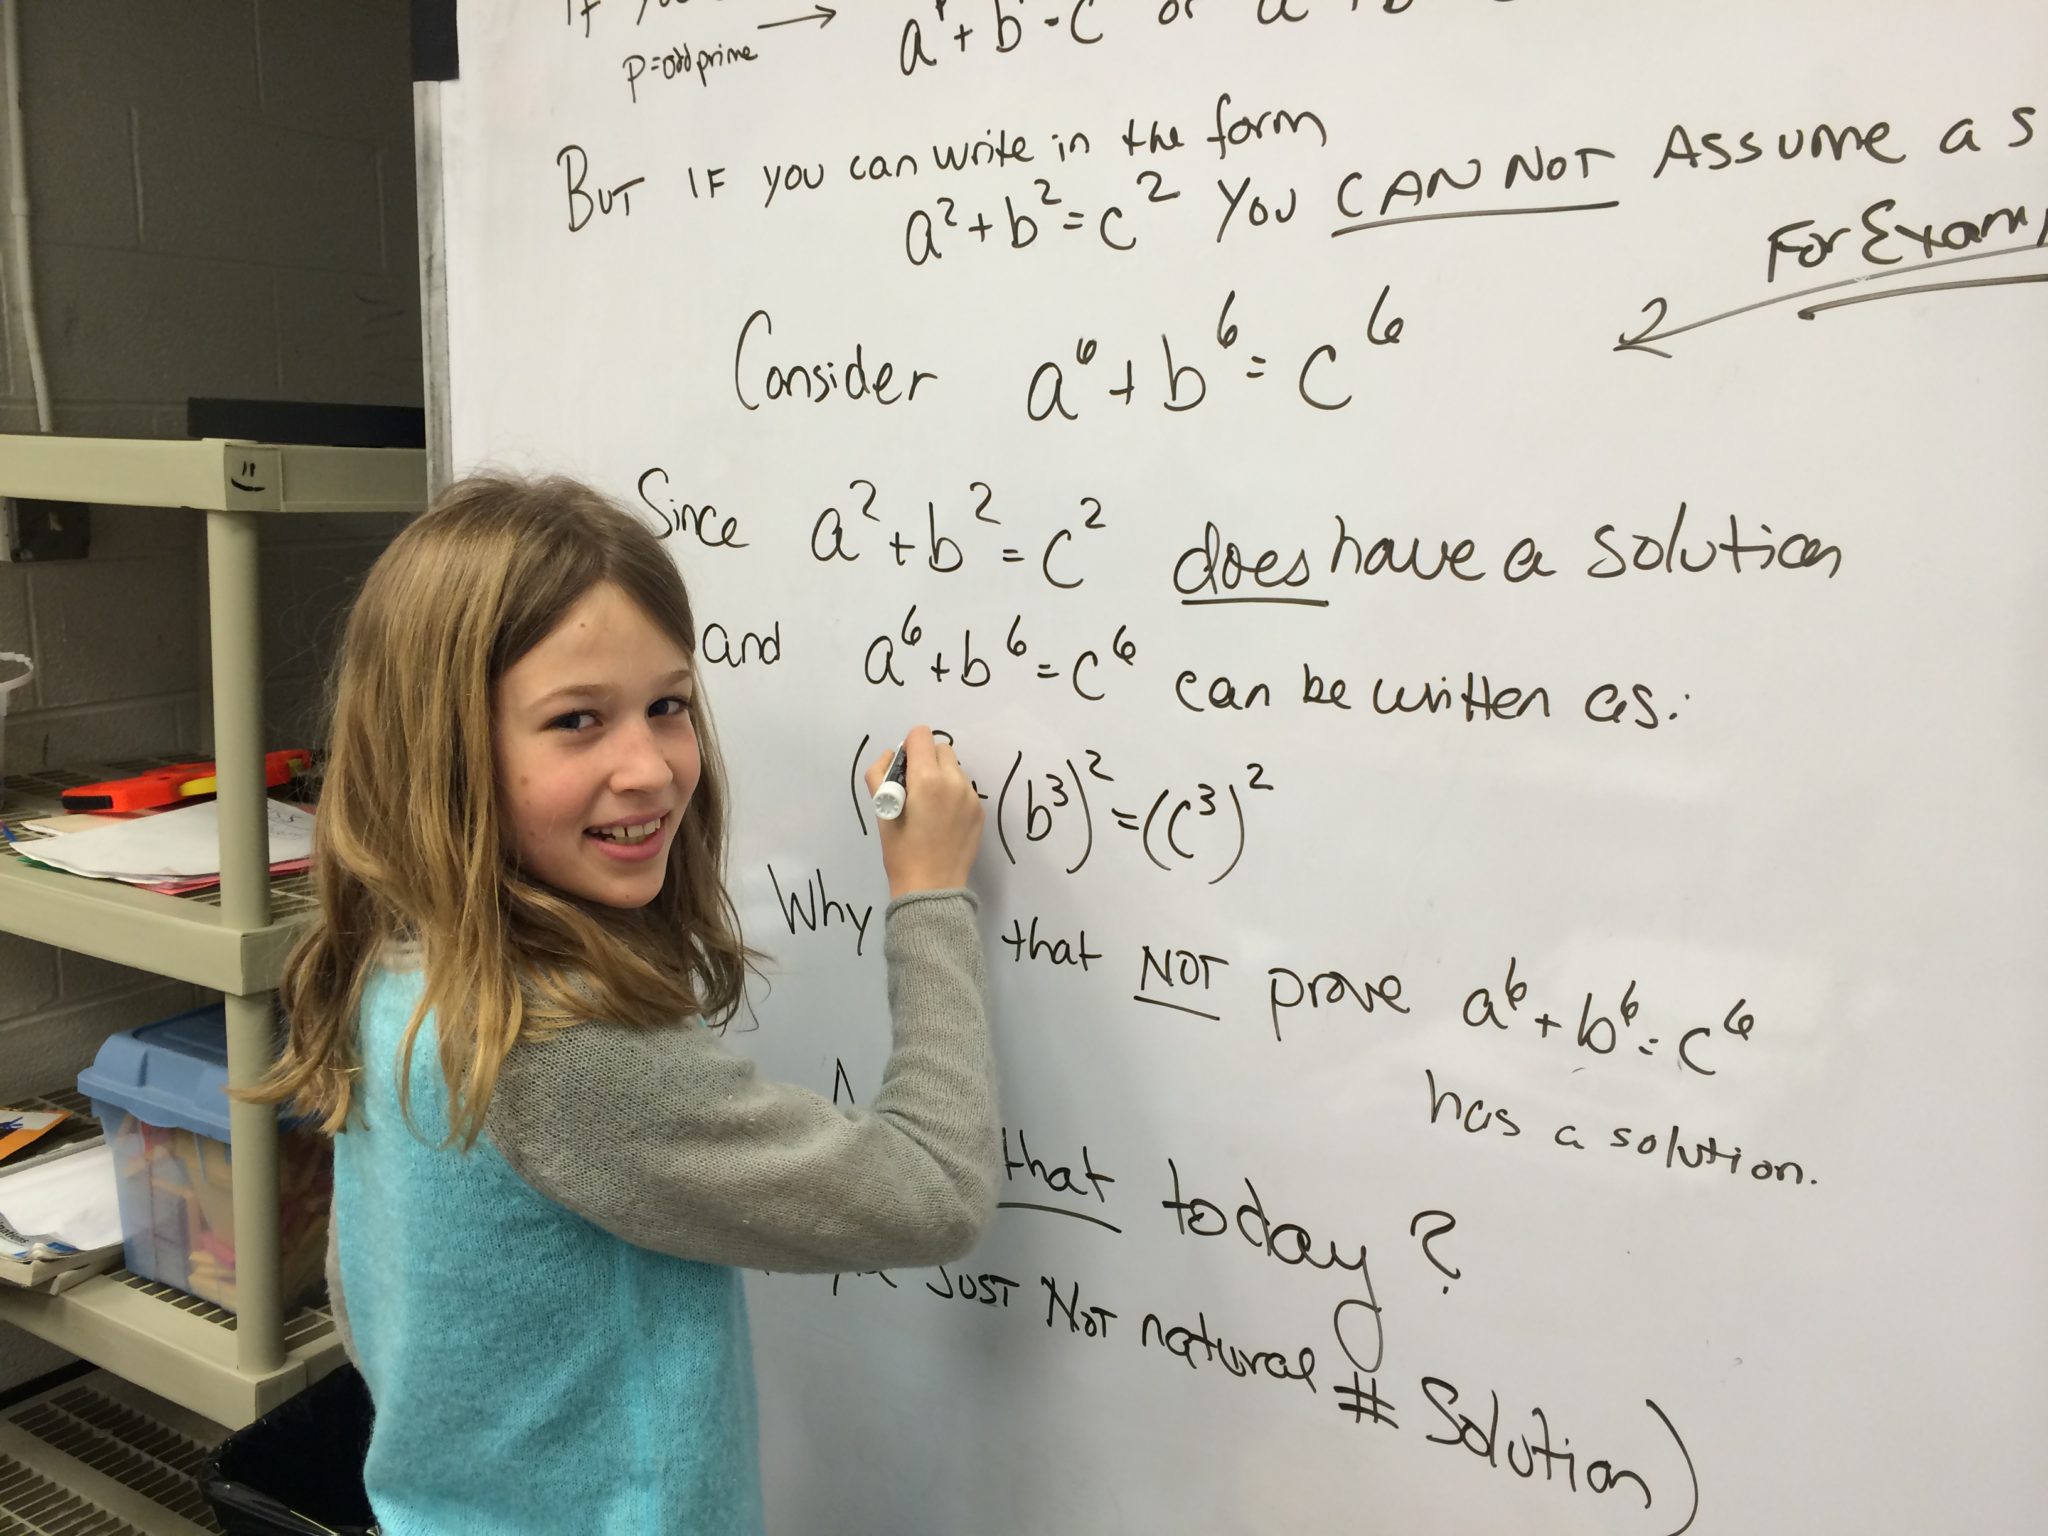 If
p=odd prime → a^p + b = c or a + b
But IF you can write in the form
a² + b² = c² You CAN NOT Assume a s
For Exam
Consider a⁶ + b⁶ = c⁶
Since a² + b² = c² does have a solution
and a⁶ + b⁶ = c⁶ can be written as:
( + (b³)² = (c³)²
Why that NOT prove a⁶ + b⁶ = c⁶
has a solution.
that today?
JUST NOT natural # Solution)